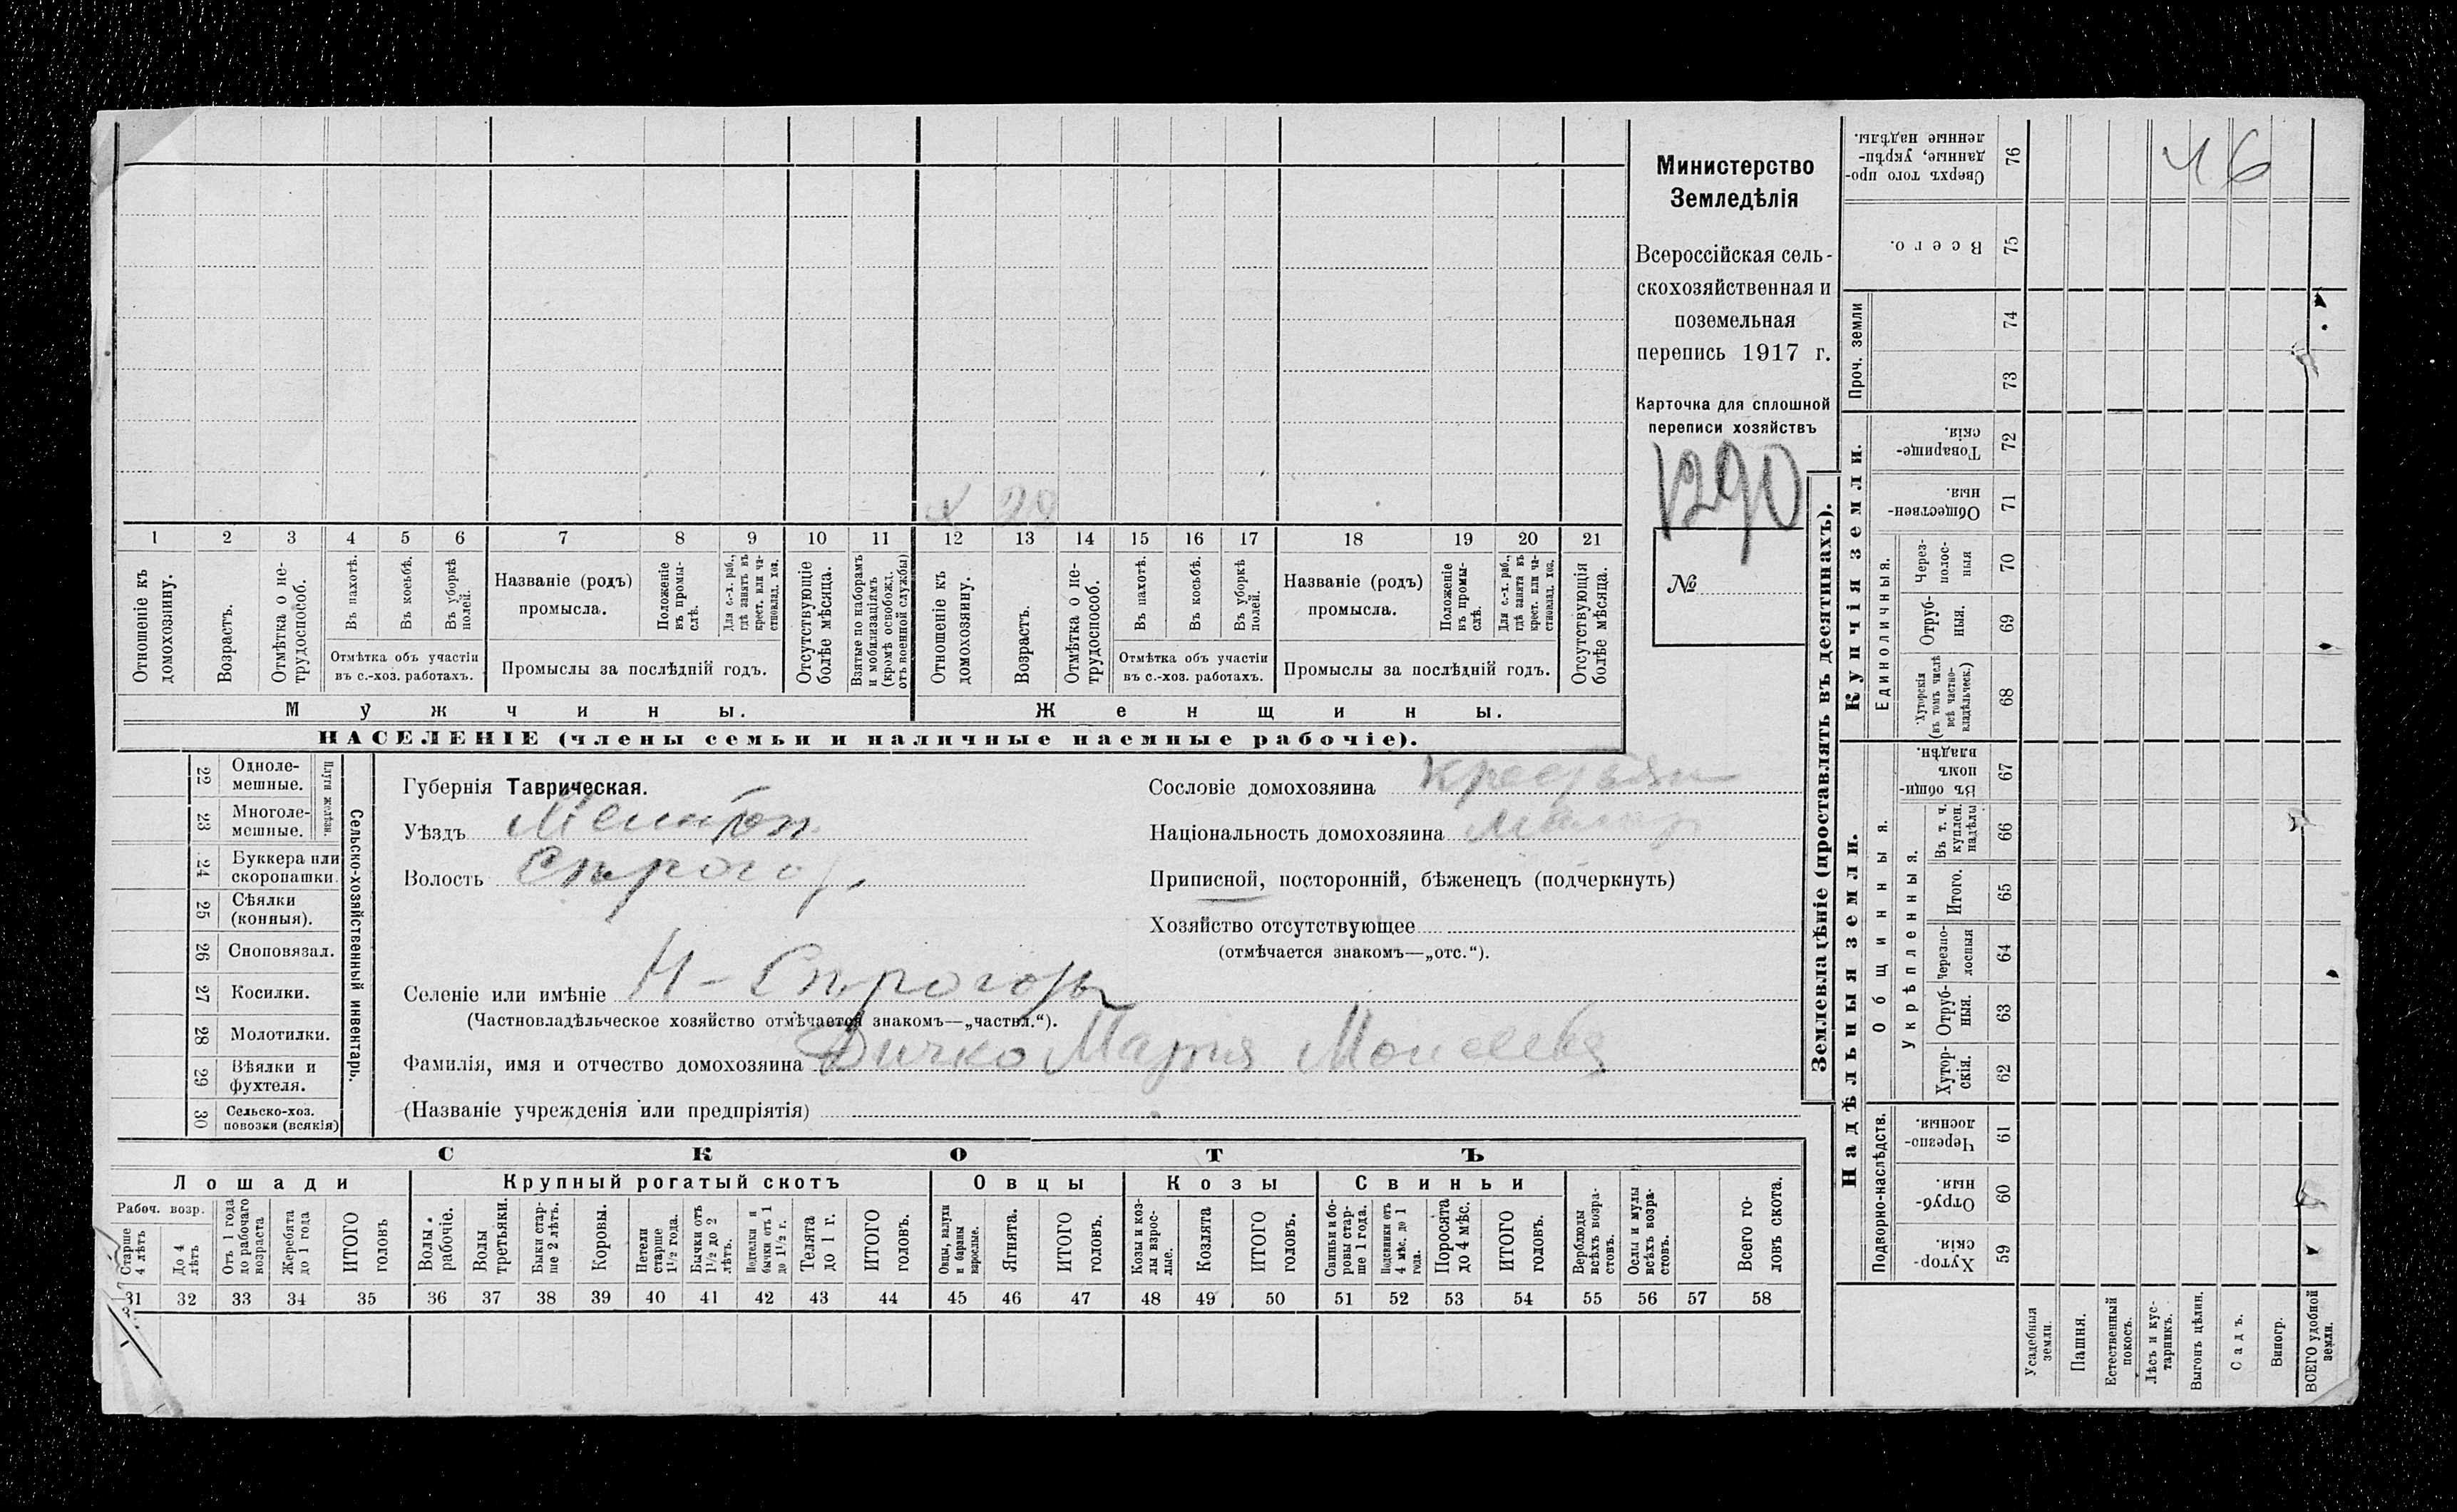 Министерство
Земледѣлія
Всероссійская сель-
скохозяйственная и
поземельная
перепись 1917 г.
Карточка для сплошной
переписи хозяйствъ
1290
№
х 20
1 2 3 4 5 6 7 8 9 10 11 12 13 14 15 16 17 18 19 20 21
Отношеніе къ домохозяину.
Возрастъ.
Отмѣтка о не-трудоспособ.
Въ пахотѣ.
Въ косьбѣ.
Въ уборкѣ полей.
Отмѣтка объ участіи
въ с.-хоз. работахъ.
Названіе (родъ)
промысла.
Положеніе въ промы-слѣ.
Для с.-х. раб., гдѣ занятъ въ крест. или ча-стновлад. хоз.
Промыслы за послѣдній годъ.
Отсутствующіе болѣе мѣсяца.
Взятые по наборамъ и мобилизаціямъ (кромѣ освобожд. отъ военной службы)
Отношеніе къ домохозяину.
Возрастъ.
Отмѣтка о не-трудоспособ.
Въ пахотѣ.
Въ косьбѣ.
Въ уборкѣ полей.
Отмѣтка объ участіи
въ с.-хоз. работахъ.
Названіе (родъ)
промысла.
Положеніе въ промы-слѣ.
Для с.-х. раб., гдѣ занята въ крест. или ча-стновлад. хоз.
Промыслы за послѣдній годъ.
Отсутствующія болѣе мѣсяца.
Мужчины.
Женщины.
НАСЕЛЕНІЕ (члены семьи и наличные наемные рабочіе).
Сельско-хозяйственный инвентарь.
Плуги желѣзн.
22 Одноле-мешные.
23 Многоле-мешные.
24 Буккера или скоропашки.
25 Сѣялки (конныя).
26 Сноповязал.
27 Косилки.
28 Молотилки.
29 Вѣялки и фухтеля.
30 Сельско-хоз. повозки (всякія)
Губернія Таврическая.
Уѣздъ Мелитоп
Волость
Селеніе или имѣніе
(Частновладѣльческое хозяйство отмѣчается знакомъ—„частвл.“).
Фамилія, имя и отчество домохозяина Дичко Мария Моисеевна
(Названіе учрежденія или предпріятія)
Сословіе домохозяина крестьян
Національность домохозяина Малор
Приписной, посторонній, бѣженецъ (подчеркнуть)
Хозяйство отсутствующее
(отмѣчается знакомъ—„отс.“).
СКОТЪ
Лошади
Крупный рогатый скотъ
Овцы
Козы
Свиньи
Рабоч. возр.
Старше 4 лѣтъ
До 4 лѣтъ
Отъ 1 года до рабочаго возраста
Жеребята до 1 года
ИТОГО головъ
Волы рабочіе.
Волы третьяки.
Быки стар-ше 2 лѣтъ.
Коровы.
Нетели старше 1½ года.
Бычки отъ 1½ до 2 лѣтъ.
Подтелки и бычки отъ 1 до 1½ г.
Телята до 1 г.
ИТОГО головъ.
Овцы, валухи и бараны взрослые.
Ягнята.
ИТОГО головъ.
Козы и коз-лы взрос-лые.
Козлята
ИТОГО головъ.
Свиньи и бо-ровы стар-ше 1 года.
Подсвинки отъ 4 мѣс. до 1 года.
Поросята до 4 мѣс.
ИТОГО головъ.
Верблюды всѣхъ возра-стовъ.
Ослы и мулы всѣхъ возра-стовъ.
Всего го-ловъ скота.
31 32 33 34 35 36 37 38 39 40 41 42 43 44 45 46 47 48 49 50 51 52 53 54 55 56 57 58
Землевладѣніе (проставлять въ десятинахъ).
Надѣльныя земли.
Купчія земли.
Проч. земли
Подворно-наслѣдств.
Общинныя.
Укрѣпленныя.
Единоличныя.
Хутор-скія. 59
Отруб-ныя. 60
Черезпо-лосныя. 61
Хутор-скія. 62
Отруб-ныя. 63
Черезпо-лосныя 64
Итого. 65
Въ т. ч. куплен. надѣлы 66
Въ общи-номъ владѣн. 67
Хуторскія (въ томъ числѣ всѣ частно-владѣльческ.) 68
Отруб-ныя. 69
Через-полос-ныя 70
Обществен-ныя. 71
Товарище-скія. 72
73
74
Всего. 75
Сверхъ того про-данные, укрѣп-ленные надѣлы. 76
Усадебныя земли.
Пашня.
Естественный покосъ.
Лѣсъ и кус-тарникъ.
Выгонъ цѣлин.
Садъ.
Виногр.
ВСЕГО удобной земли.